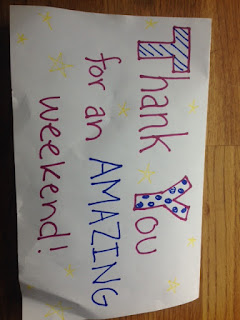 Thank You
for an AMAZING
weekend!